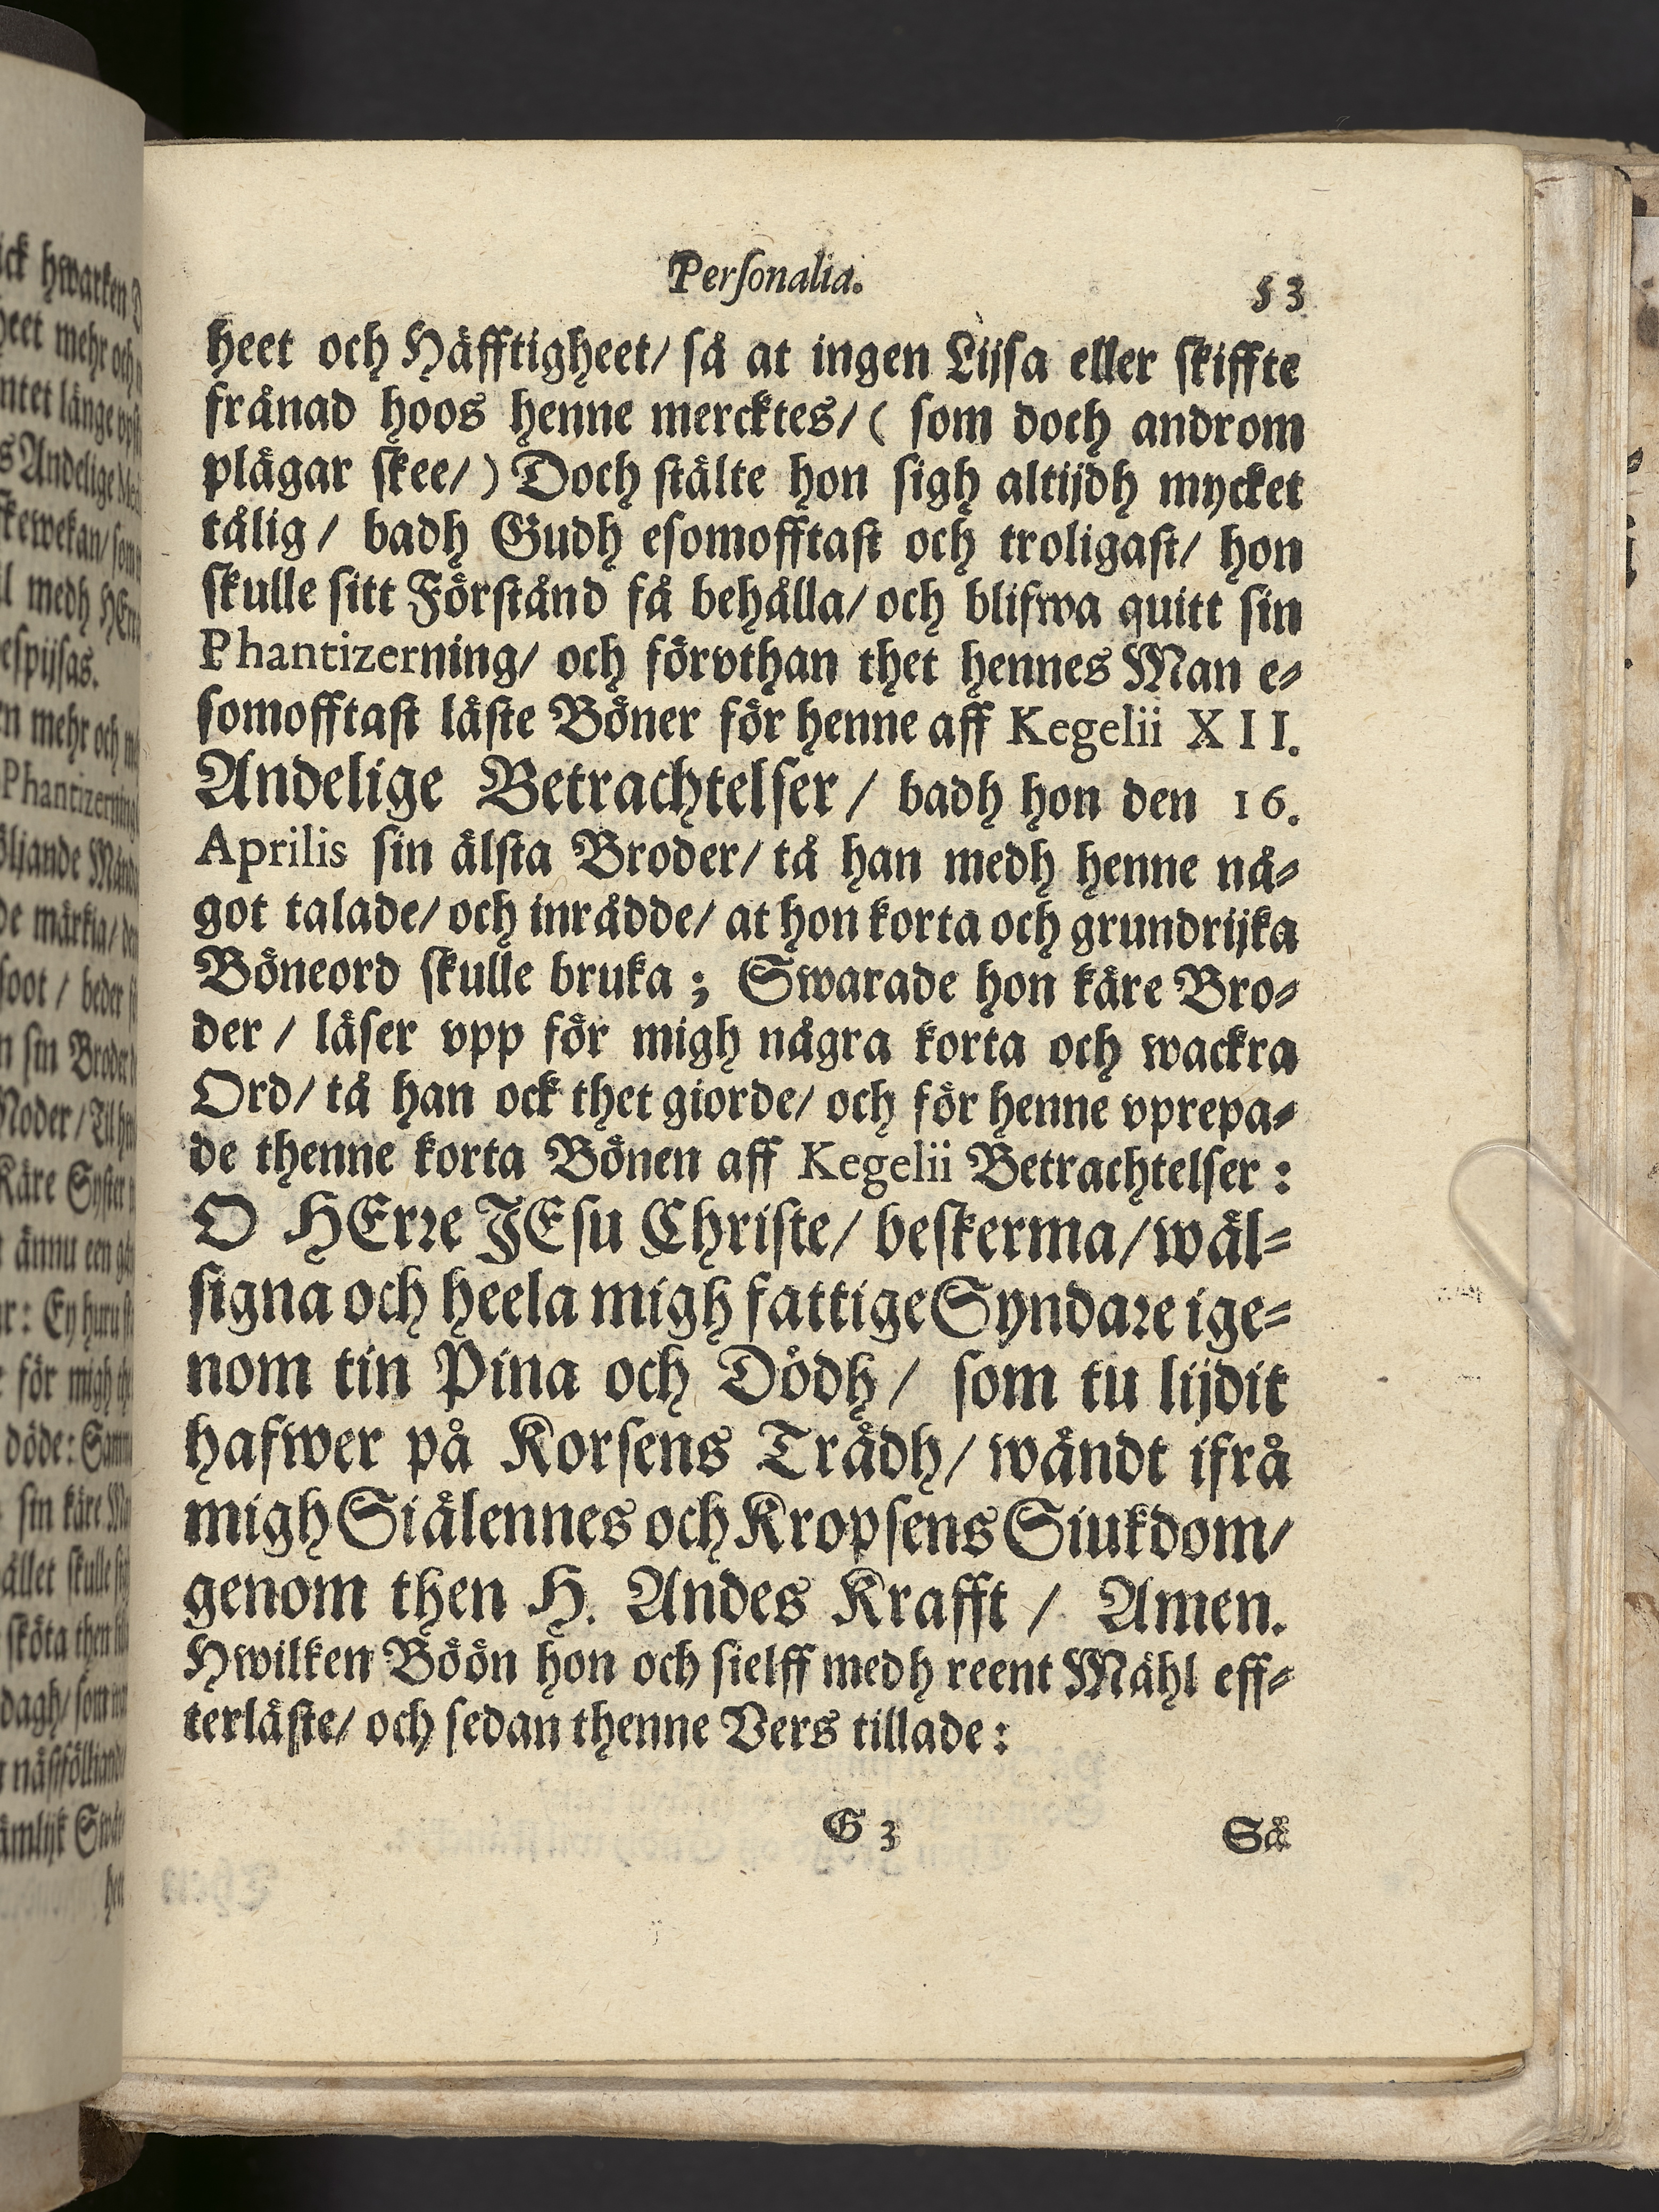 Perſonalia. 53
heet och Häfftigheet/ så at ingen Lijsa eller skiffte
frånad hoos henne mercktes/ ( som doch androm
plägar skee/ ) Doch stälte hon sigh altijdh mycket
tålig / badh Gudh esomofftast och troligast/ hon
skulle sitt Förstånd få behålla/ och blifwa quitt sin
Phantizerning/ och förvthan thet hennes Man e⸗
somofftast läste Böner för henne aff Kegelii XII.
Andelige Betrachtelser / badh hon den 16.
Aprilis sin älsta Broder/ tå han medh henne nå⸗
got talade/ och inrådde/ at hon korta och grundrijka
Böneord skulle bruka ; Swarade hon käre Bro⸗
der / läser vpp för migh några korta och wackra
Ord/ tå han ock thet giorde/ och för henne vprepa⸗
de thenne korta Bönen aff Kegelii Betrachtelser :
O HErre JEsu Christe/ beskerma/ wäl⸗
signa och heela migh fattige Syndare ige⸗
nom tin Pina och Dödh / som tu lijdit
hafwer på Korsens Trädh/ wändt ifrå
migh Siälennes och Kropsens Siukdom/
genom then H. Andes Krafft / Amen.
Hwilken Böön hon och sielff medh reent Mähl eff⸗
terläste/ och sedan thenne Vers tillade :
G 3 Så